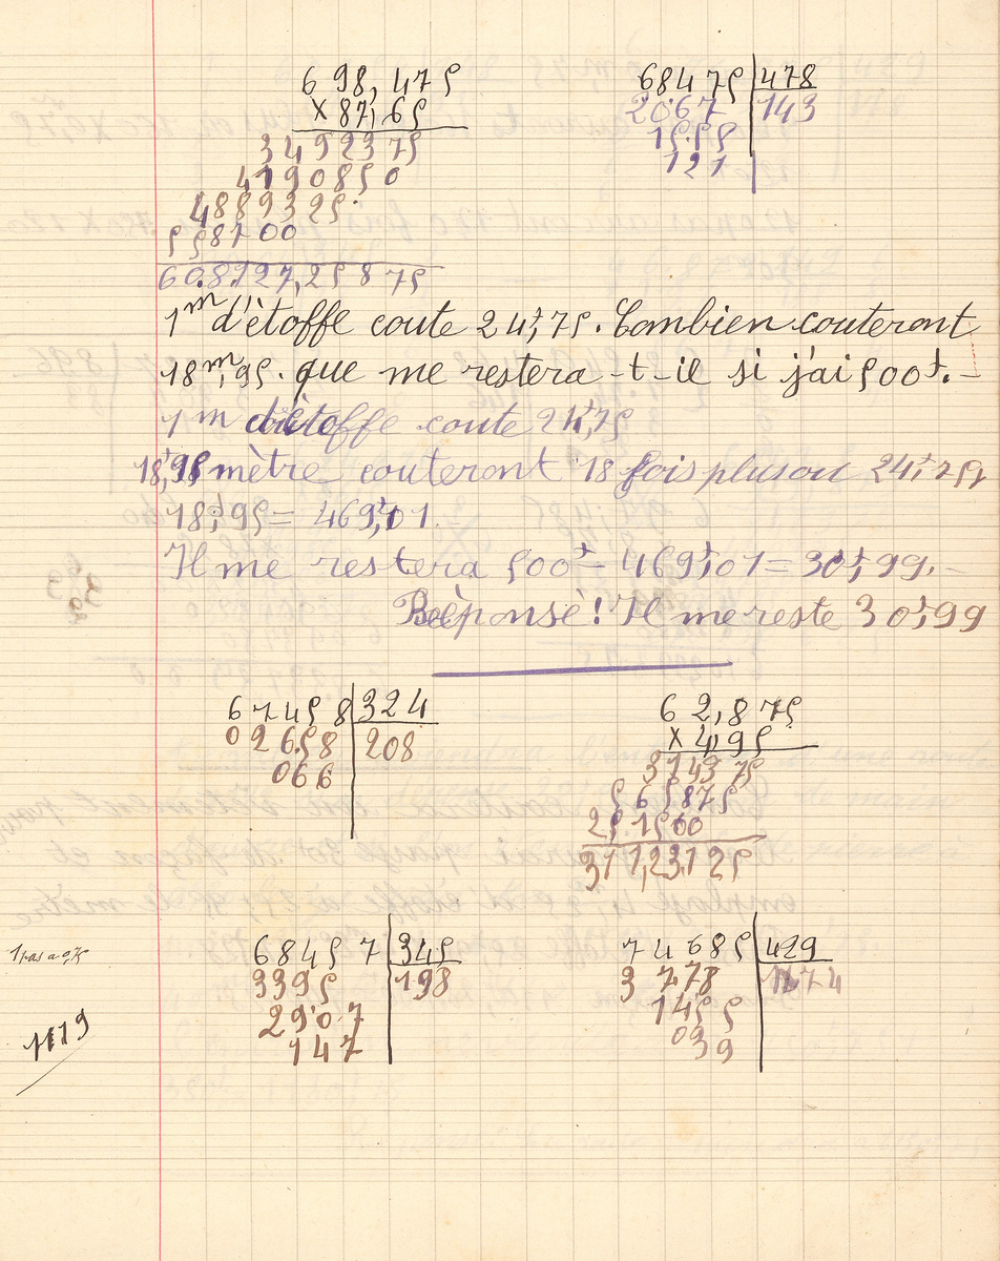 698,475
×87,65
3492375
4190850
4889325.
558700
60.8.127,25875
68475 478
2067 143
1555
121
1m d'ètoffe coute 24f,75. Combien couteront
18m,95. que me restera-t-il si j'ai 500f.-
1m d'ètoffe coute 24f,75
18,95 mètre couteront 18 fois plus ou 24f,75x
18f,95 = 469f,01.
Il me restera 500f - 469f,01 = 30f,99.-
Rèponse! Il me reste 30f,99
67458 324
02658 208
066
62,875
×4,95
314375
565875
251500
311,23125
68457 345
3395 198
2907
147
74685 429
3178 174
1455
039
11/19